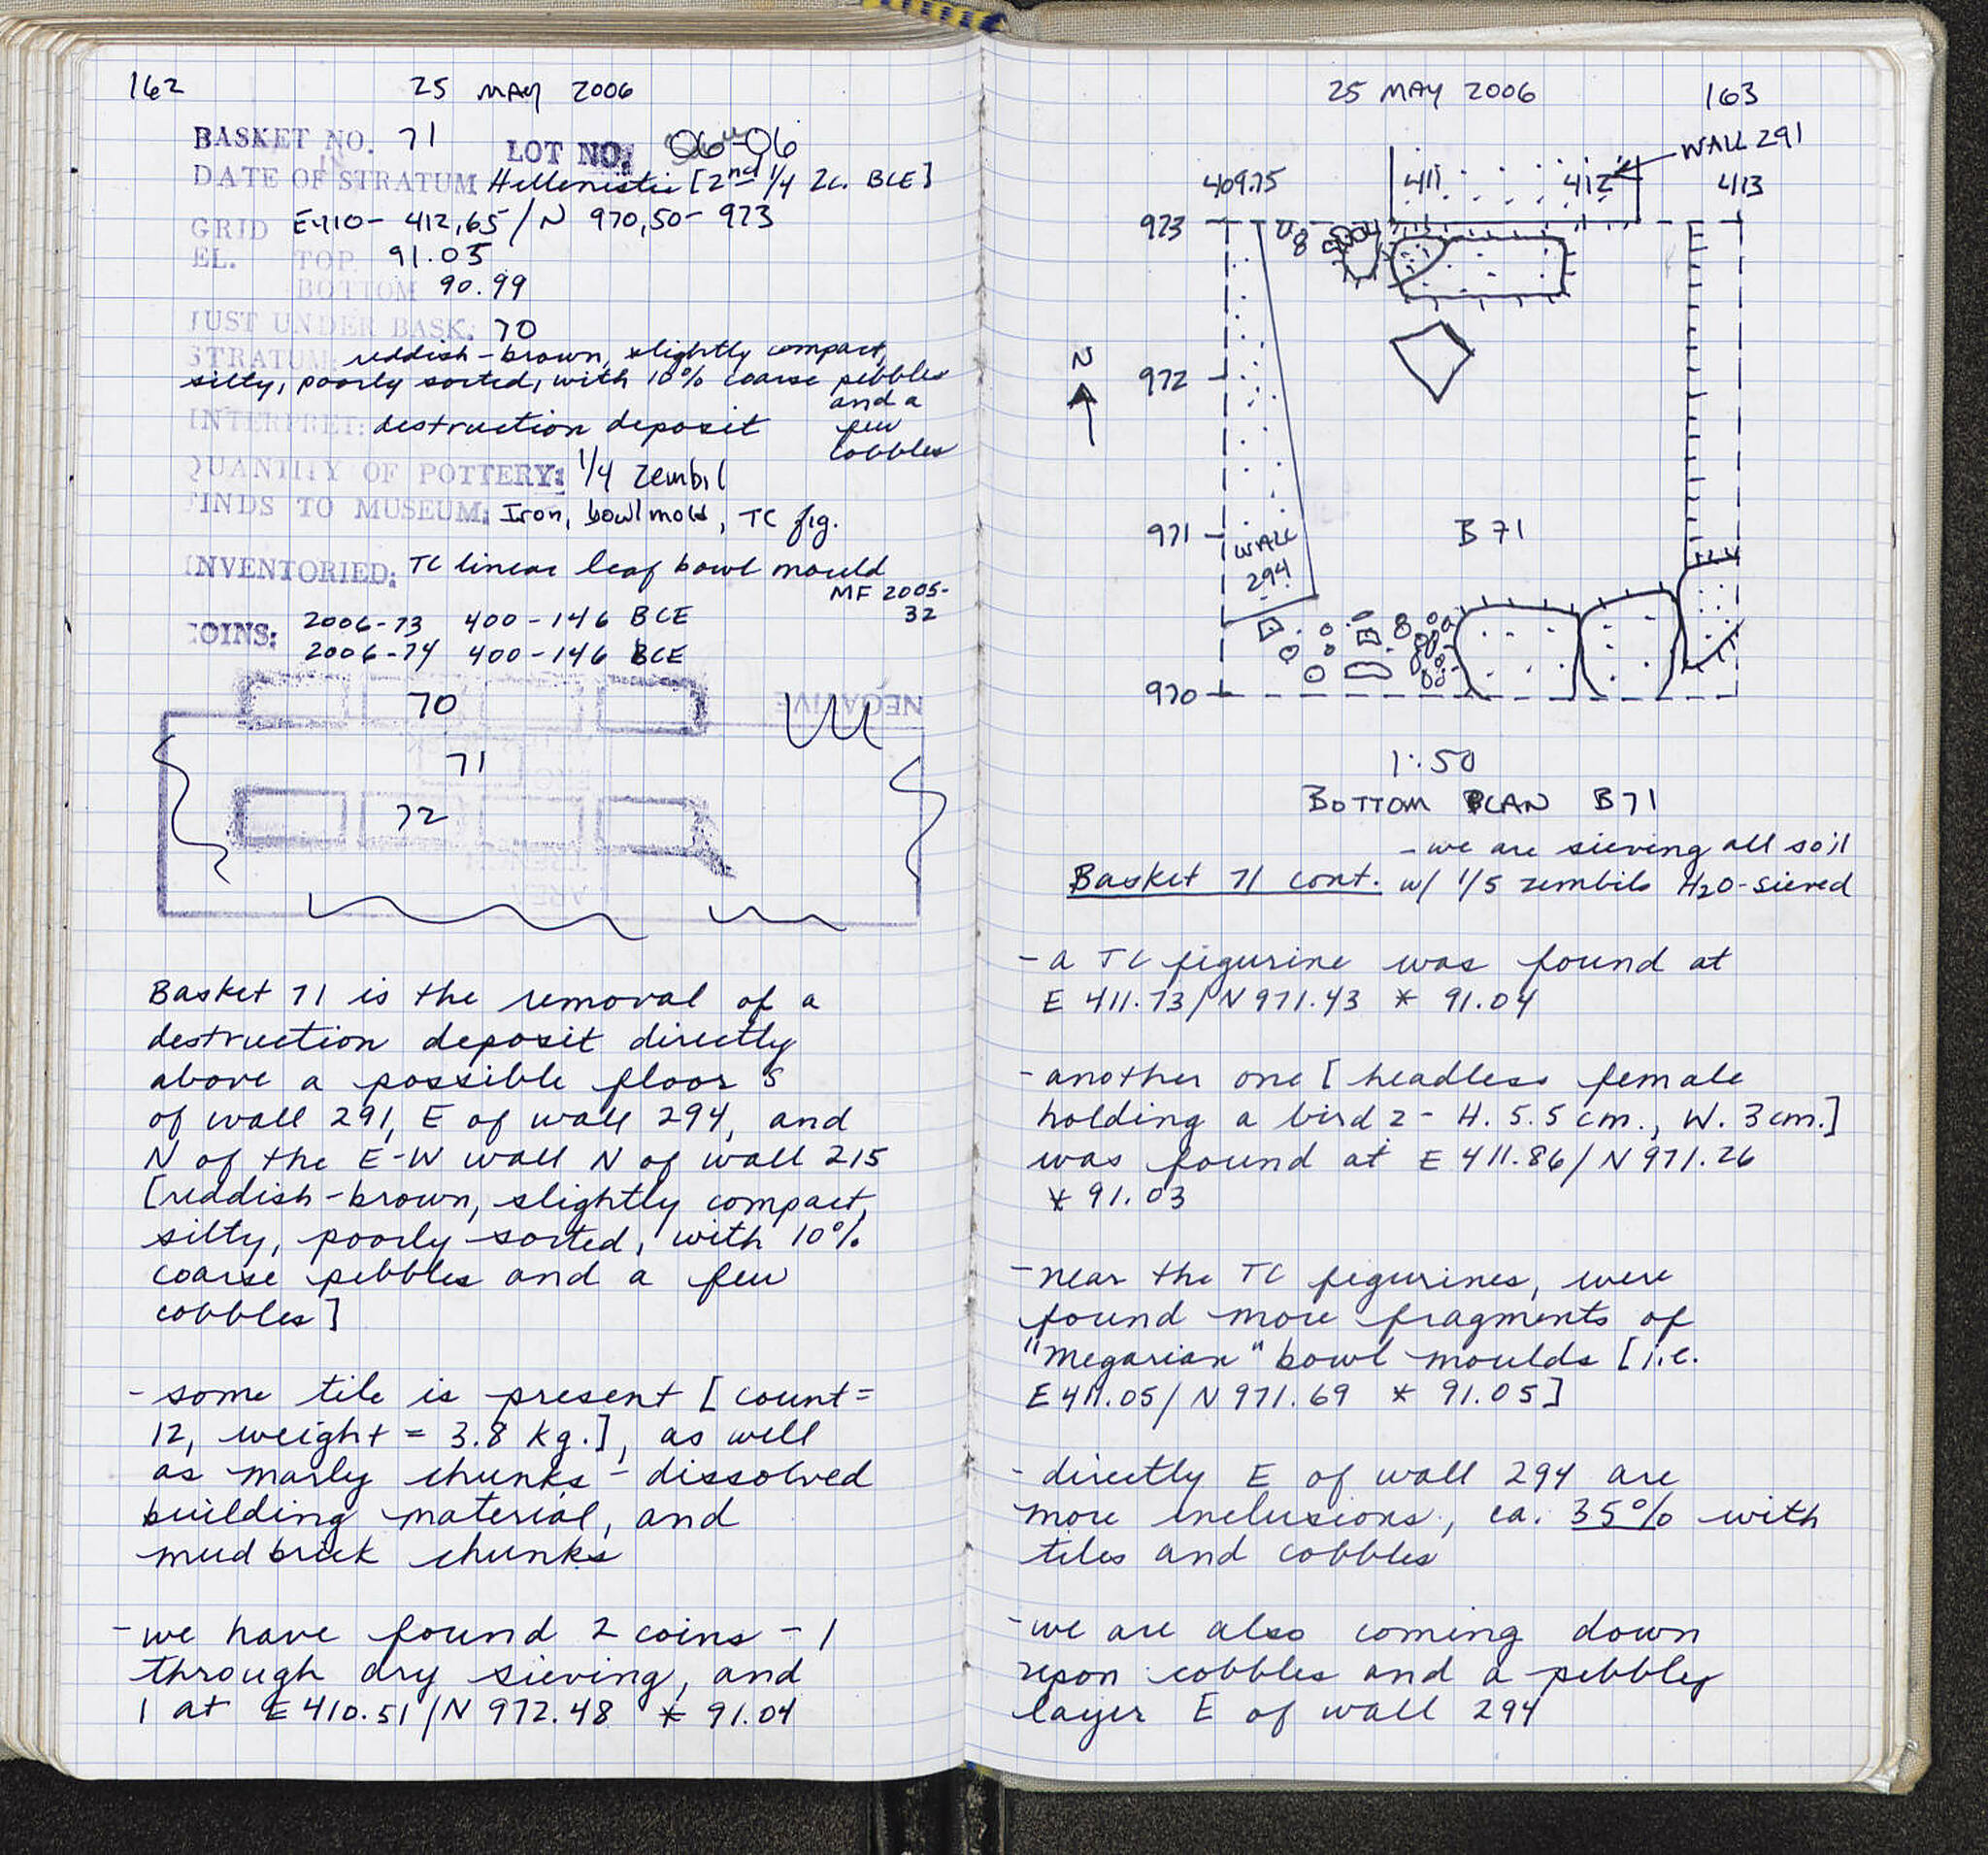 162 25 MAY 2006
BASKET NO. 71 LOT NO. 06-06
DATE OF STRATUM Hellenistic [2nd 1/4 2c. BCE]
GRID E410- 412,65/N 970,50-973
EL. TOP 91.05
BOTTOM 90.99
JUST UNDER BASK: 70
STRATUM: reddish-brown, slightly compact,
silty, poorly sorted, with 10% coarse pebbles
and a
few
cobbles
INTERPRET: destruction deposit
QUANTITY OF POTTERY: 1/4 zembil
FINDS TO MUSEUM: Iron, bowl mold, TC fig.
INVENTORIED: TC linear leaf bowl mould
MF 2005-
32
COINS: 2006-73 400-146 BCE
2006-74 400-146 BCE
NEGATIVE
70
71
72
TRENCH
AREA
Basket 71 is the removal of a
destruction deposit directly
above a possible floor S
of wall 291, E of wall 294, and
N of the E-W wall N of wall 215
[reddish-brown, slightly compact,
silty, poorly sorted, with 10%
coarse pebbles and a few
cobbles]
- some tile is present [count=
12, weight = 3.8 kg.], as well
as marly chunks - dissolved
building material, and
mudbrick chunks
- we have found 2 coins - 1
through dry sieving, and
1 at E410.51/N 972.48 * 91.04
25 MAY 2006 163
WALL 291
409.75 411 412 413
973
N
972
971
WALL
294
B 71
970
1:50
BOTTOM PLAN B71
- we are sieving all soil
Basket 71 cont. w/ 1/5 zembils H2O-sieved
- a TC figurine was found at
E 411.73/N971.43 * 91.04
- another one [headless female
holding a bird 2 - H. 5.5cm., W. 3cm.]
was found at E411.86/N971.26
* 91.03
- near the TC figurines, were
found more fragments of
"Megarian" bowl moulds [i.e.
E411.05/N971.69 * 91.05]
- directly E of wall 294 are
more inclusions, ca. 35% with
tiles and cobbles
- we are also coming down
upon cobbles and a pebbley
layer E of wall 294